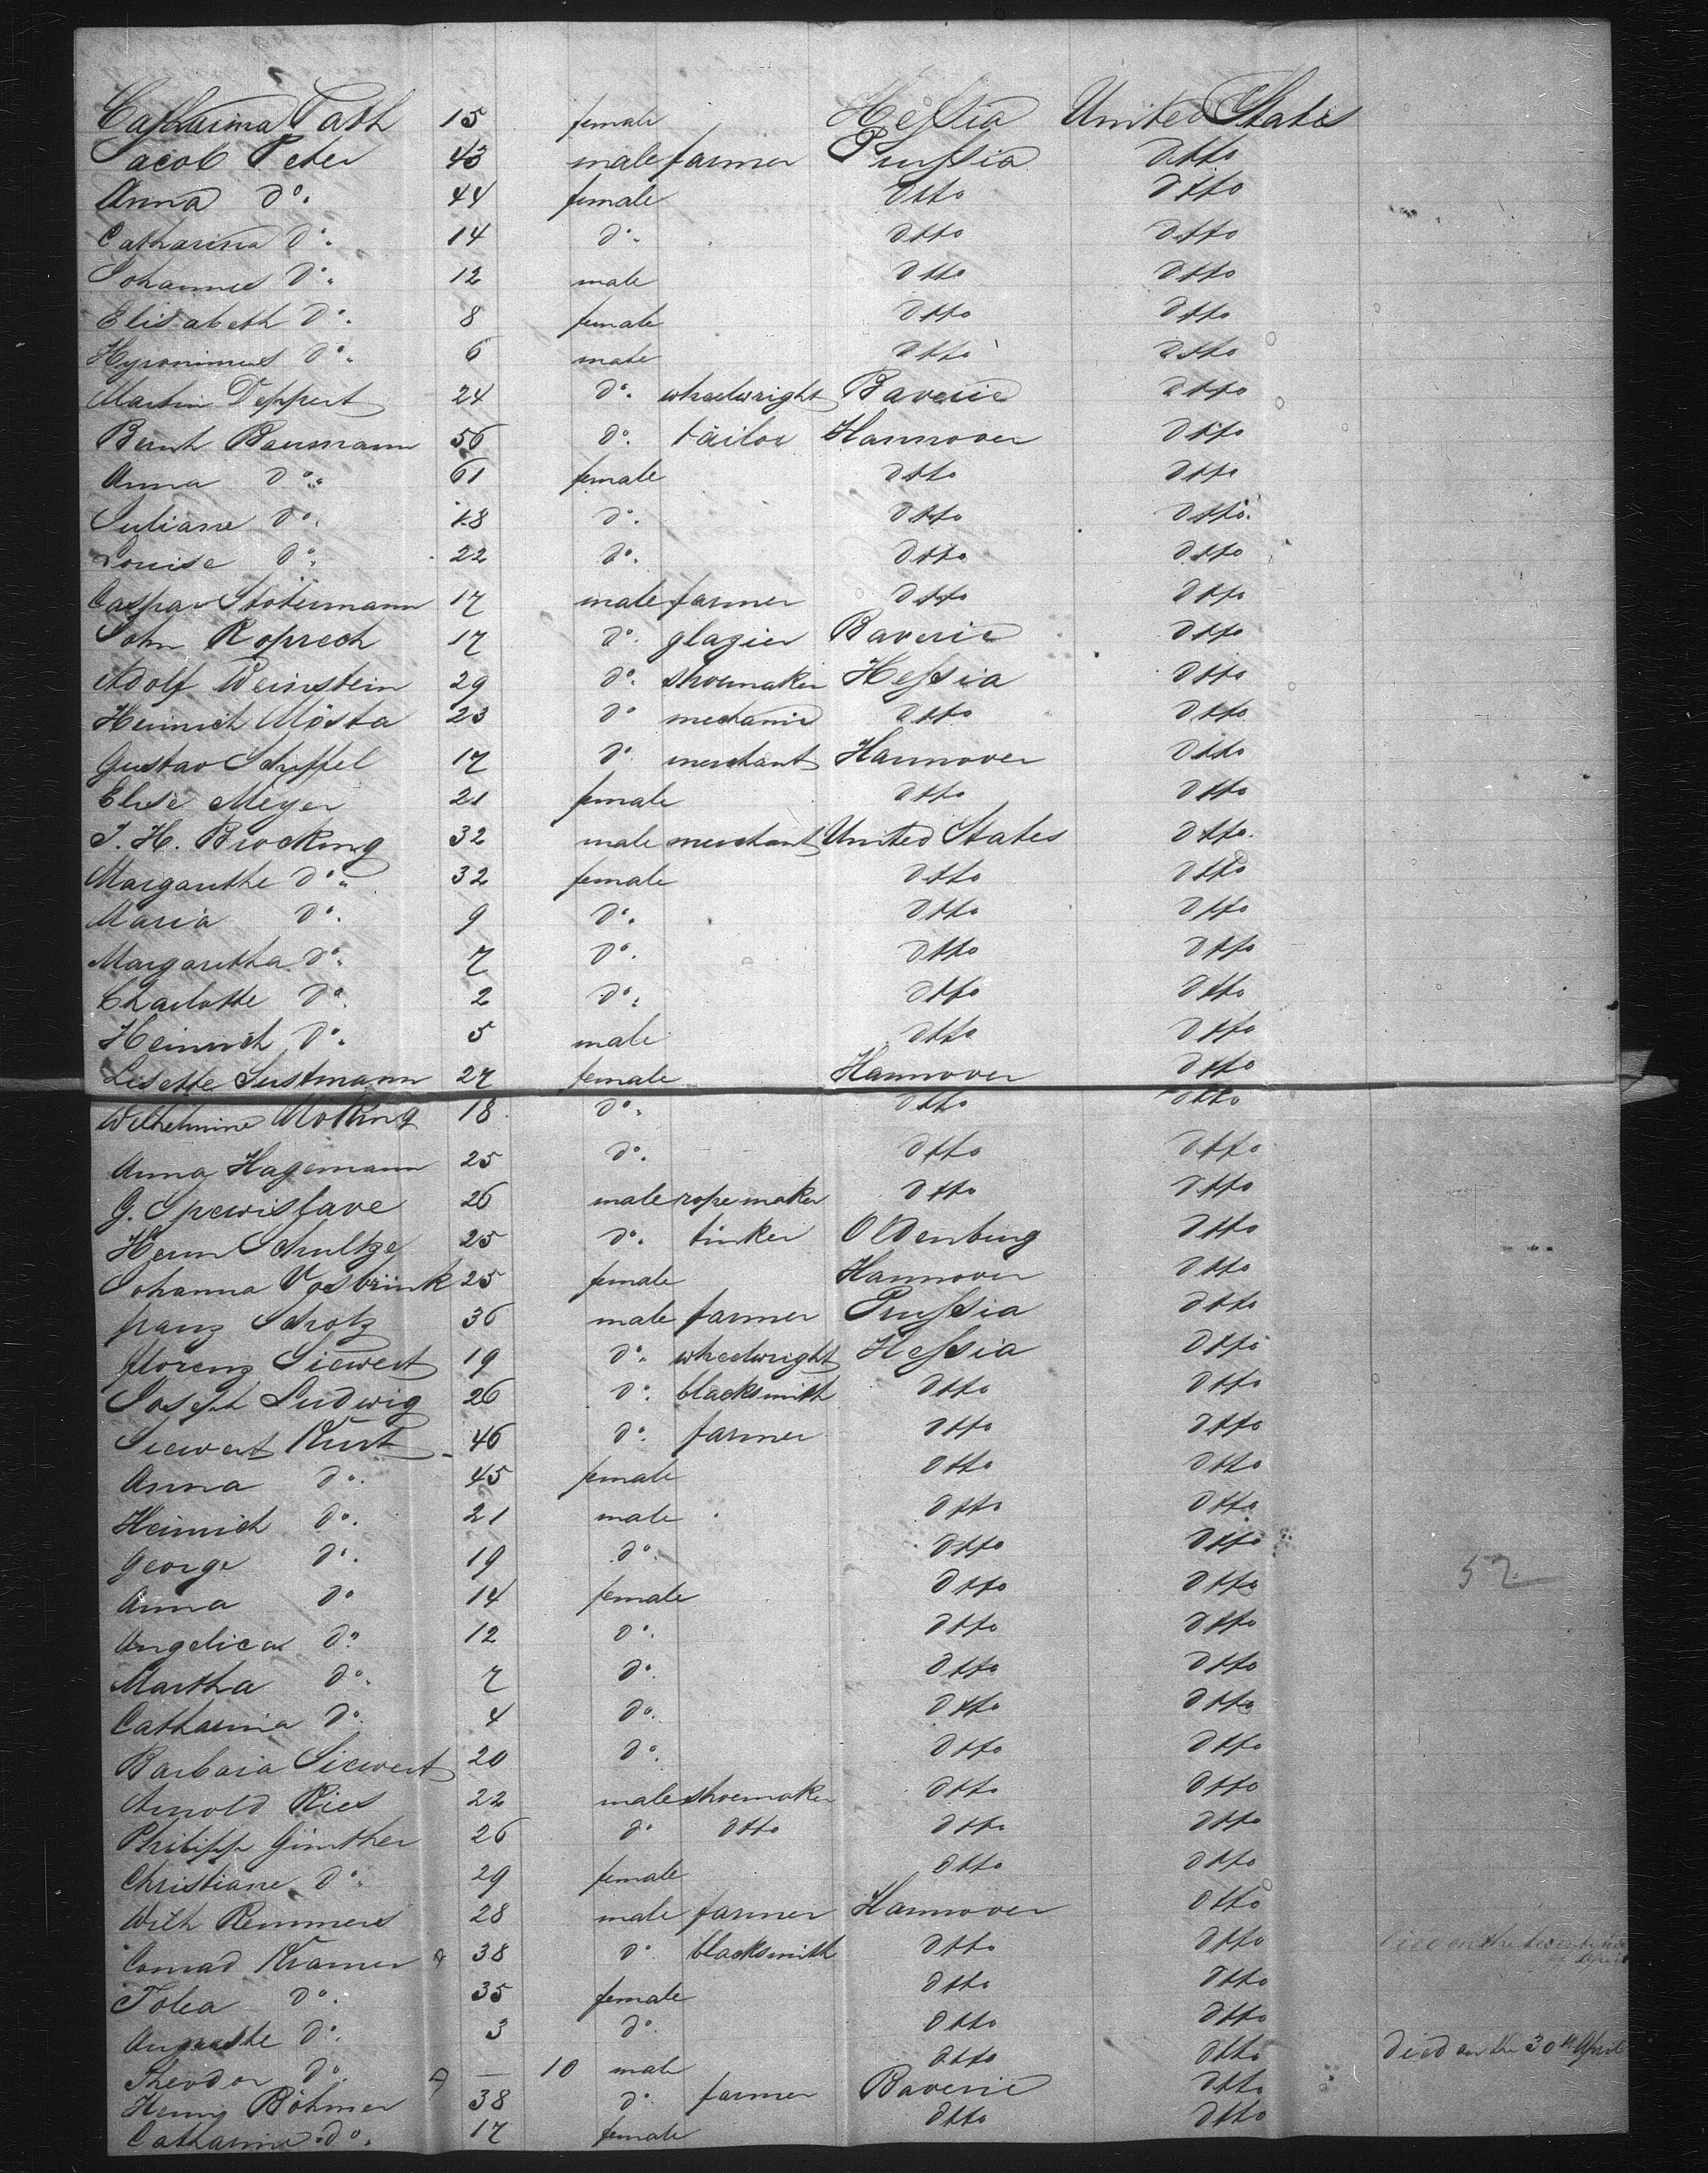 Catharina Path 15 female Hessia United States
Jacob Peter 43 male farmer Prussia ditto
Anna do. 44 female ditto ditto
Catharina do. 14 do. ditto ditto
Johannes do. 12 male ditto ditto
Elisabeth do. 8 female ditto ditto
Hyronimus do. 6 male ditto ditto
Martin Deppert 24 do. wheelwright Baverie ditto
Bernh Baumann 56 do. tailor Hannover ditto
Anna do. 61 female ditto ditto
Juliane do. 18 do. ditto ditto
Louise do. 22 do. ditto ditto
Caspar Stötermann 17 male farmer ditto ditto
John Roprech 17 do. glazier Baverie ditto
Adolf Weinstein 29 do. shoemaker Hessia ditto
Heinrich Mösta 23 do mechanic ditto ditto
Gustav Scheffel 17 do. merchant Hannover ditto
Elise Meyer 21 female ditto ditto
J. H. Brocking 32 male merchant United States ditto
Margarethe do. 32 female ditto ditto
Maria do. 9 do. ditto ditto
Margaretha do. 7 do. ditto ditto
Charlotte do. 2 do. ditto ditto
Heinrich do. 5 male ditto ditto
Lisette Sustmann 27 female Hannover ditto
Wilhelmine Mörking 18 do. ditto ditto
Anna Hagemann 25 do. ditto ditto
G. 26 male ropemaker ditto ditto
Herm Schultze 25 do. tinker Oldenburg ditto
Johanna Vosbrink 25 female Hannover ditto
franz Scholz 36 male farmer Prussia ditto
florenz Siewert 19 do. wheelwright Hessia ditto
Joseph Ludwig 26 do. blacksmith ditto ditto
Siewert Kurt 46 do. farmer ditto ditto
Anna do. 45 female ditto ditto
Heinrich do. 21 male ditto ditto
George do. 19 do. ditto ditto
52
Anna do 14 female ditto ditto
Angelica do. 12 do. ditto ditto
Martha do. 7 do. ditto ditto
Catharina do. 4 do. ditto ditto
Barbara Siewert 20 do. ditto ditto
Arnold Ries 22 male shoemaker ditto ditto
Philipp Günther 26 do ditto ditto ditto
Christiane do. 29 female ditto ditto
Wilh Remmers 28 male farmer Hannover ditto
Conrad Kramer 38 do. blacksmith ditto ditto died on the
Tolea do. 35 female ditto ditto
Auguste do. 3 do. ditto ditto
Theodor do. — 10 male ditto ditto died on the 30th April
Henry Böhmer 38 do. farmer Baverie ditto
Catharine do. 17 female ditto ditto